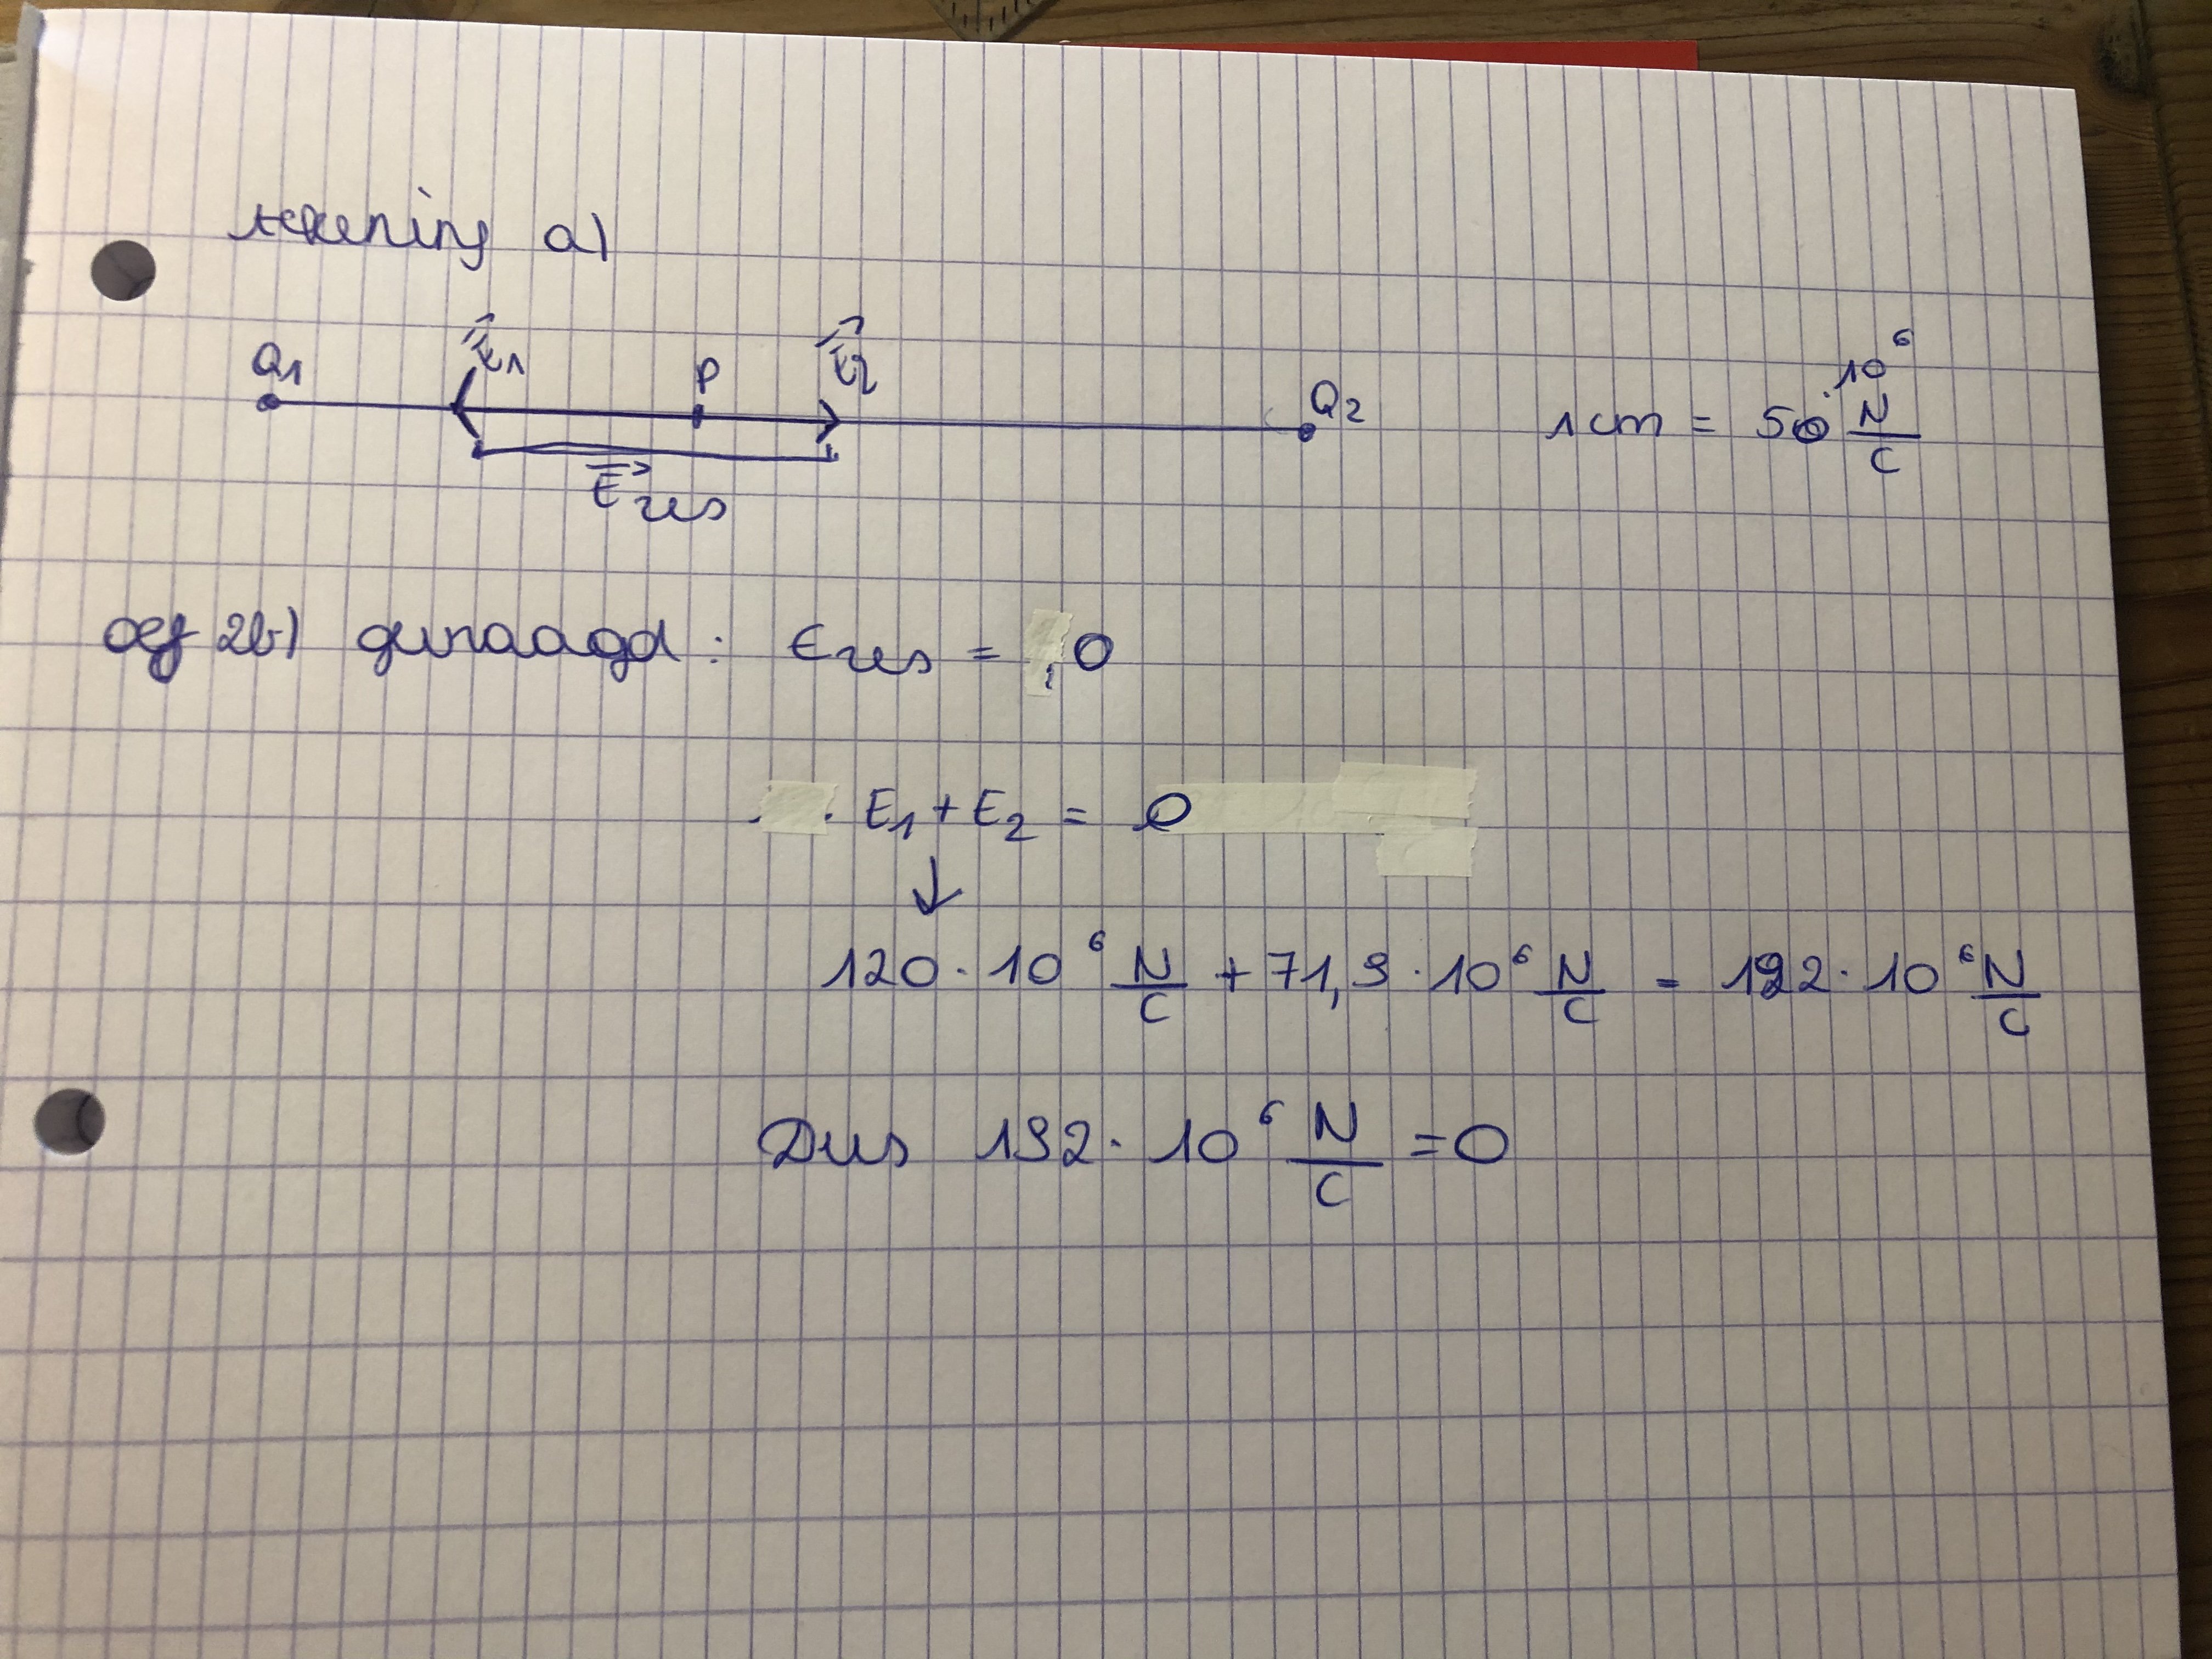 tekening a)
Q1 E⃗1 P E⃗2 Q2 1cm = 50·10⁶ N/C
E⃗res
oef 2b) gevraagd : Eres = 0
E₁ + E₂ = 0
↓
120·10⁶ N/C + 71,9·10⁶ N/C = 192·10⁶ N/C
Dus 192·10⁶ N/C = 0